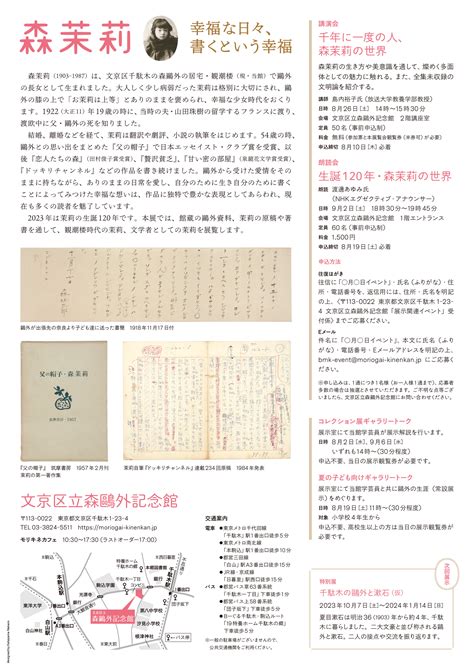 森茉莉
幸福な日々、
書くという幸福
森茉莉(1903-1987)は、文京区千駄木の森鷗外の居宅・観潮楼(現・当館)で鷗外
の長女として生まれました。大人しく少し病弱だった茉莉は格別に大切にされ、鷗
外の膝の上で「お茉莉は上等」とありのままを褒められ、幸福な少女時代をおくり
ます。1922(大正11)年19歳の時に、当時の夫・山田珠樹が留学するフランスに渡り、
渡欧中に父・鷗外の死を知りました。
結婚、離婚などを経て、茉莉は翻訳や劇評、小説の執筆をはじめます。54歳の時、
鷗外との思い出をまとめた『父の帽子』で日本エッセイスト・クラブ賞を受賞、以
後『恋人たちの森』(田村俊子賞受賞)、『贅沢貧乏』、『甘い蜜の部屋』(泉鏡花文学賞受賞)、
『ドッキリチャンネル』などの作品を書き続けました。鷗外から受けた愛情をその
ままに持ちながら、ありのままの日常を愛し、自分のために生き自分のために書く
ことによってみつけた幸福な想いは、作品に独特で豊かな表現としてあらわれ、現
在も多くの読者を魅了しています。
2023年は茉莉の生誕120年です。本展では、館蔵の鷗外資料、茉莉の原稿や著
書を通して、観潮楼時代の茉莉、文学者としての茉莉を展覧します。
鷗外が出張先の奈良より子ども達に送った書簡 1918年11月17日付
父の帽子・森茉莉
『父の帽子』 筑摩書房 1957年2月刊
茉莉の第一著作集
茉莉自筆『ドッキリチャンネル』連載234回原稿 1984年発表
文京区立森鷗外記念館
〒113-0022 東京都文京区千駄木1-23-4
TEL 03-3824-5511 https://moriogai-kinenkan.jp
モリキネカフェ 10:30〜17:30(ラストオーダー17:00)
交通案内
電車 ●東京メトロ千代田線
「千駄木」駅1番出口徒歩5分
●東京メトロ南北線
「本駒込」駅1番出口徒歩10分
●都営三田線
「白山」駅A3番出口徒歩15分
●JR線・京成線
「日暮里」駅西口徒歩15分
バス ●都営バス草63系統
「千駄木一丁目」下車徒歩1分
●都営バス上58系統
「団子坂下」下車徒歩5分
●B-ぐる千駄木・駒込ルート
「19特養ホーム千駄木の郷」
下車徒歩1分
※一般の駐車場がございませんので、
公共交通機関をご利用ください。
講演会
千年に一度の人、
森茉莉の世界
森茉莉の生き方や美意識を通して、煌めく多面
体としての魅力に触れる。また、全集未収録の
文明論を紹介する。
講師 島内裕子氏(放送大学教養学部教授)
日時 8月26日[土] 14時〜15時30分
会場 文京区立森鷗外記念館 2階講座室
定員 50名(事前申込制)
料金 無料(参加票と本展覧会観覧券(半券可)が必要)
申込締切 8月10日[木]必着
朗読会
生誕120年・森茉莉の世界
朗読 渡邊あゆみ氏
(NHKエグゼクティブ・アナウンサー)
日時 9月2日[土] 18時30分〜19時45分
会場 文京区立森鷗外記念館 1階エントランス
定員 60名(事前申込制)
料金 1,500円
申込締切 8月19日[土]必着
申込方法
往復はがき
往信に「○月○日イベント」・氏名(ふりがな)・住
所・電話番号を、返信用には、住所・氏名を明記
の上、〈〒113-0022 東京都文京区千駄木1-23-
4 文京区立森鷗外記念館「展示関連イベント」受
付係〉までご応募ください。
Eメール
件名に「○月○日イベント」、本文に氏名(ふりが
な)・電話番号・Eメールアドレスを明記の上、
bmk-event@moriogai-kinenkan.jp にご応募く
ださい。
コレクション展ギャラリートーク
展示室にて当館学芸員が展示解説を行います。
日時 8月2日[水]、9月6日[水]
いずれも14時〜(30分程度)
申込不要、当日の展示観覧券が必要です。
夏の子ども向けギャラリートーク
展示室にて当館学芸員と共に鷗外の生涯(常設展
示)をめぐります。
日時 8月19日[土]11時〜(30分程度)
対象 小学校4年生から
申込不要、高校生以上の方は当日の展示観覧券が
必要です。
次回展示
特別展
千駄木の鷗外と漱石(仮)
2023年10月7日[土]〜2024年1月14日[日]
夏目漱石は明治36(1903)年から約4年、千駄
木に暮らしました。二大文豪と並び称される鷗
外と漱石。二人の接点や交流を振り返ります。